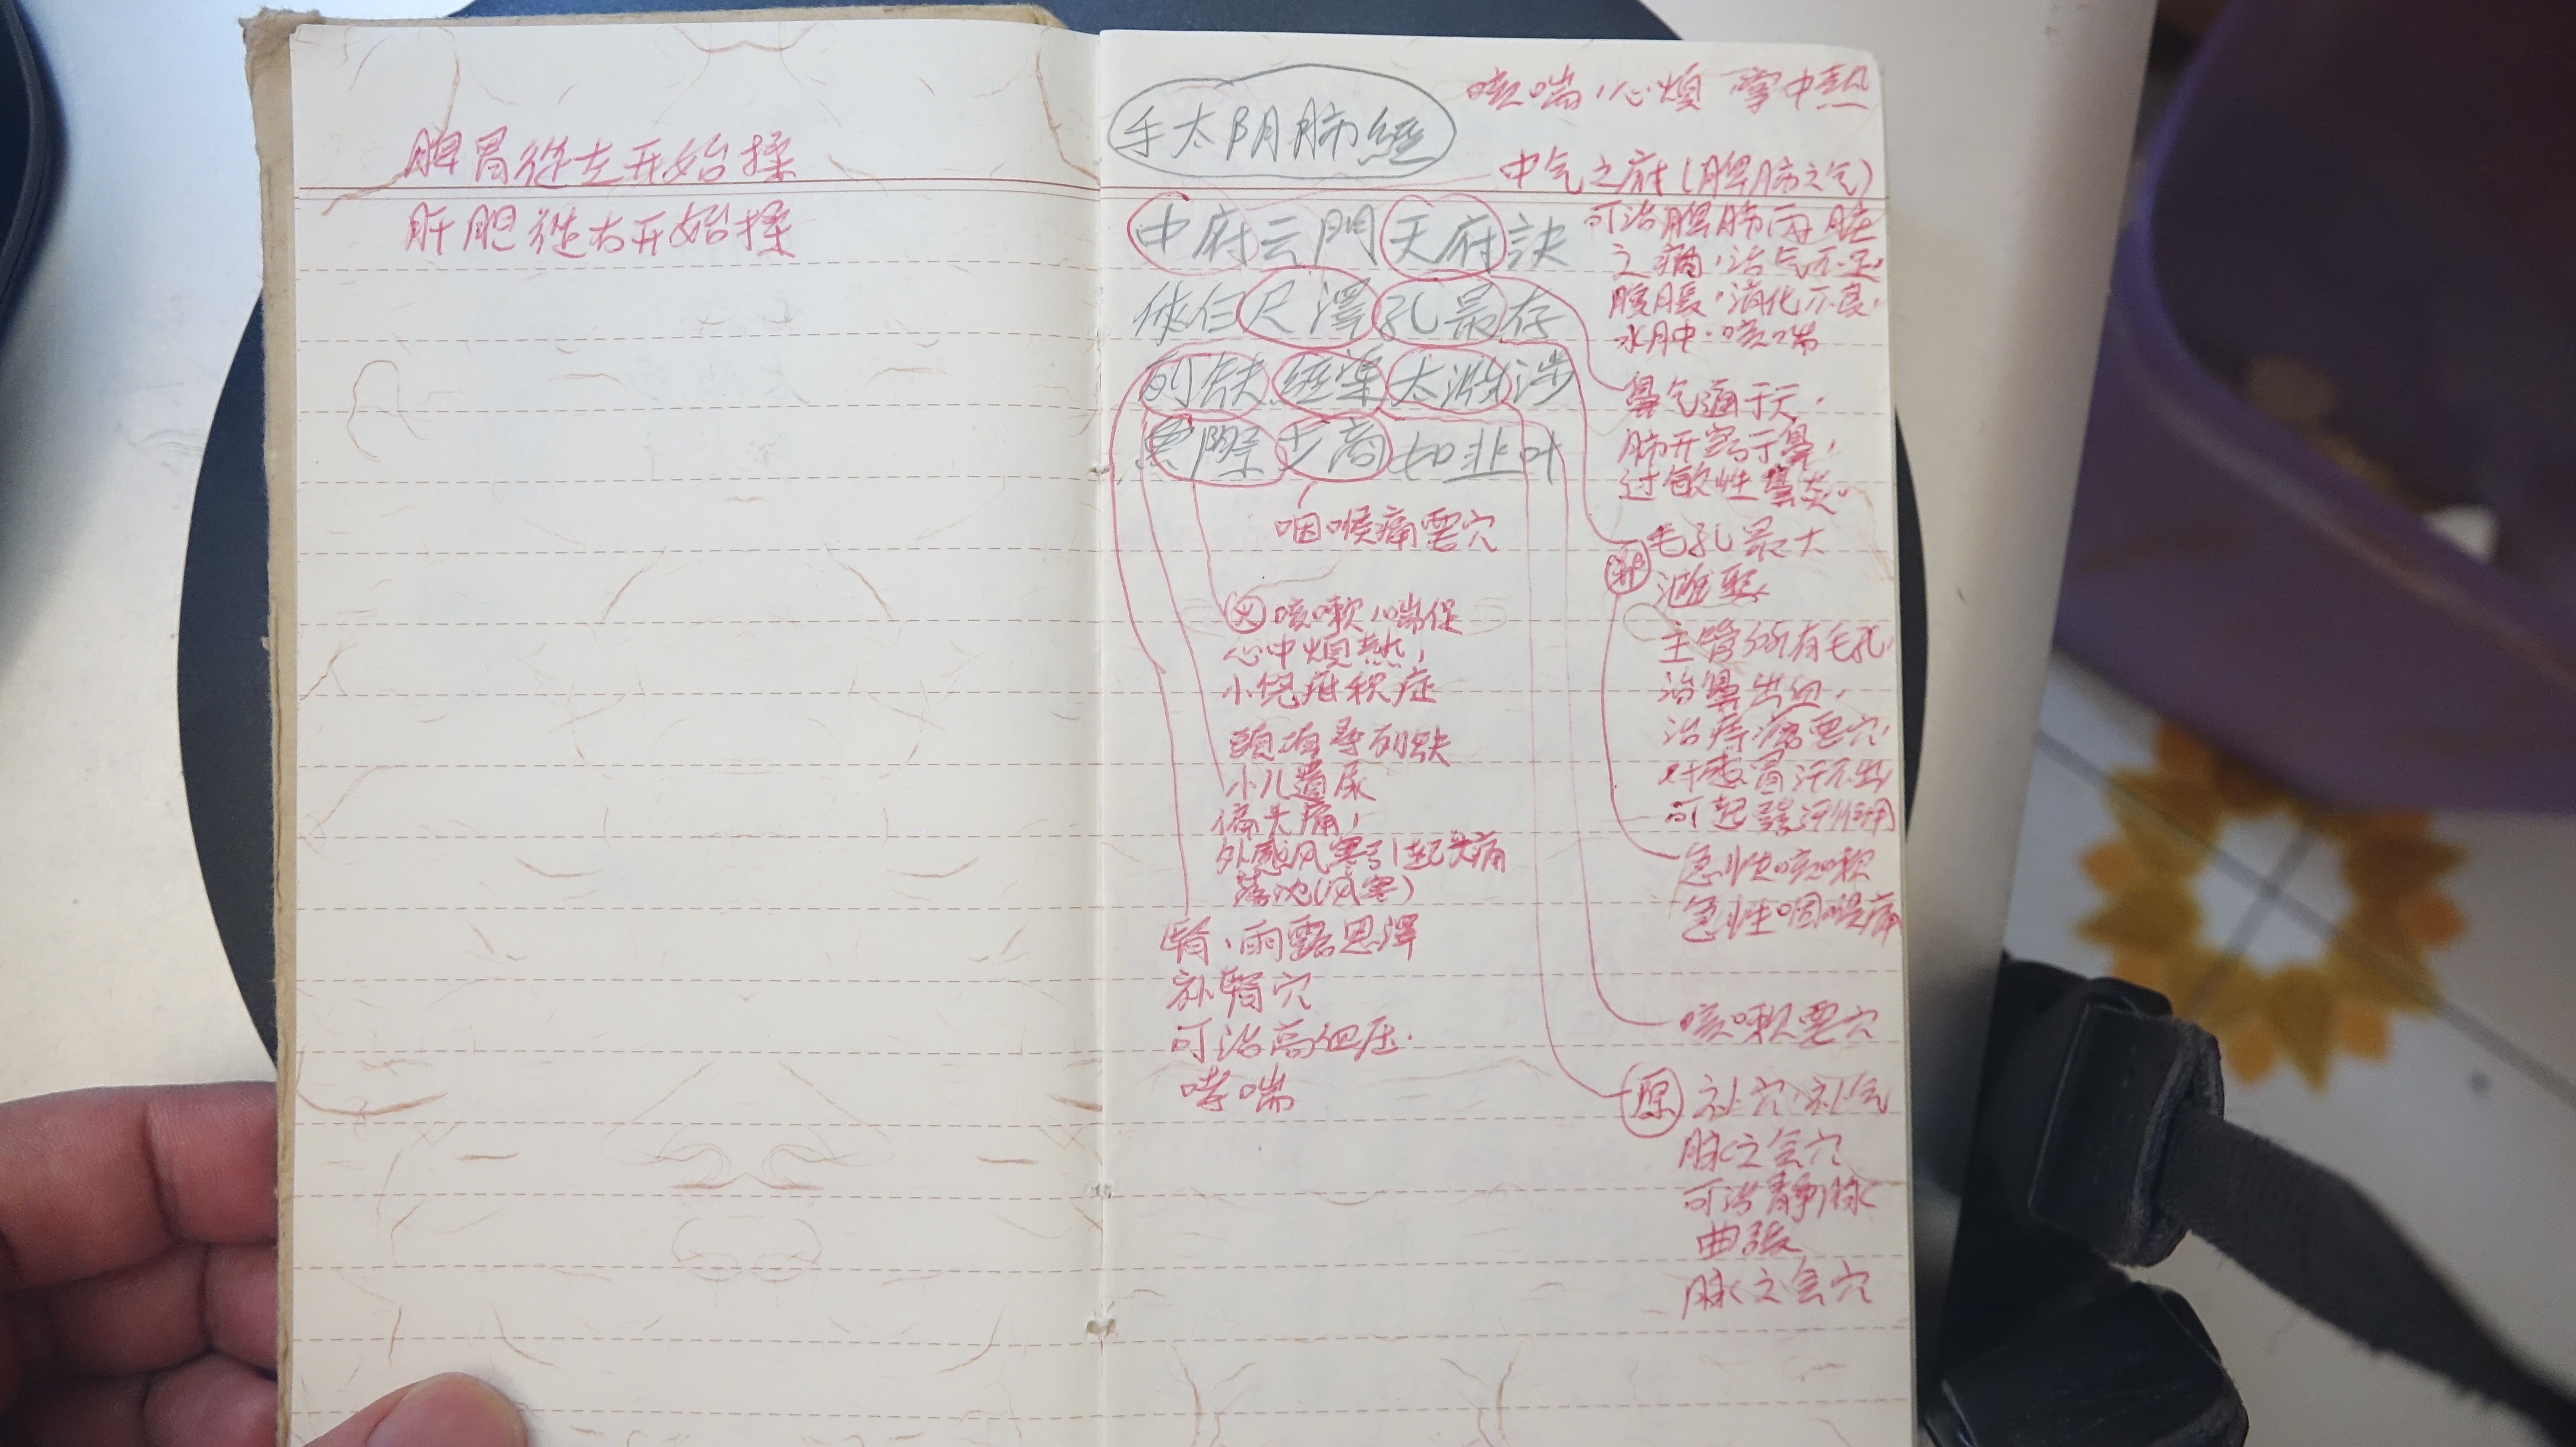 脾胃從左开始揉
肝胆從右开始揉
手太阴肺經
咳喘，心煩 掌中熱
中气之府（脾肺之气）
可治脾肺兩脏
之病，治气不足，
腹脹，消化不良，
水肿，咳喘
中府云門天府訣
俠白尺澤孔最存
列缺經渠太淵涉
魚際少商如韭叶
鼻气通于天，
肺开窍于鼻，
过敏性鼻炎。
咽喉痛要穴
郄 毛孔最大
主管所有毛孔
治鼻出血，
治痔瘡要穴，
对感冒汗不出
可起發汗作用
急性咳嗽
急性咽喉痛
咳嗽，喘促
心中煩热，
小兒疳积症
頭項尋列缺
小儿遺尿
偏头痛，
外感风寒引起头痛
落枕（风寒）
腎，雨露恩澤
补腎穴
可治高血压．
哮喘
咳嗽要穴
原 补穴，补气
脉之会穴
可治靜脉
曲張
脉之会穴